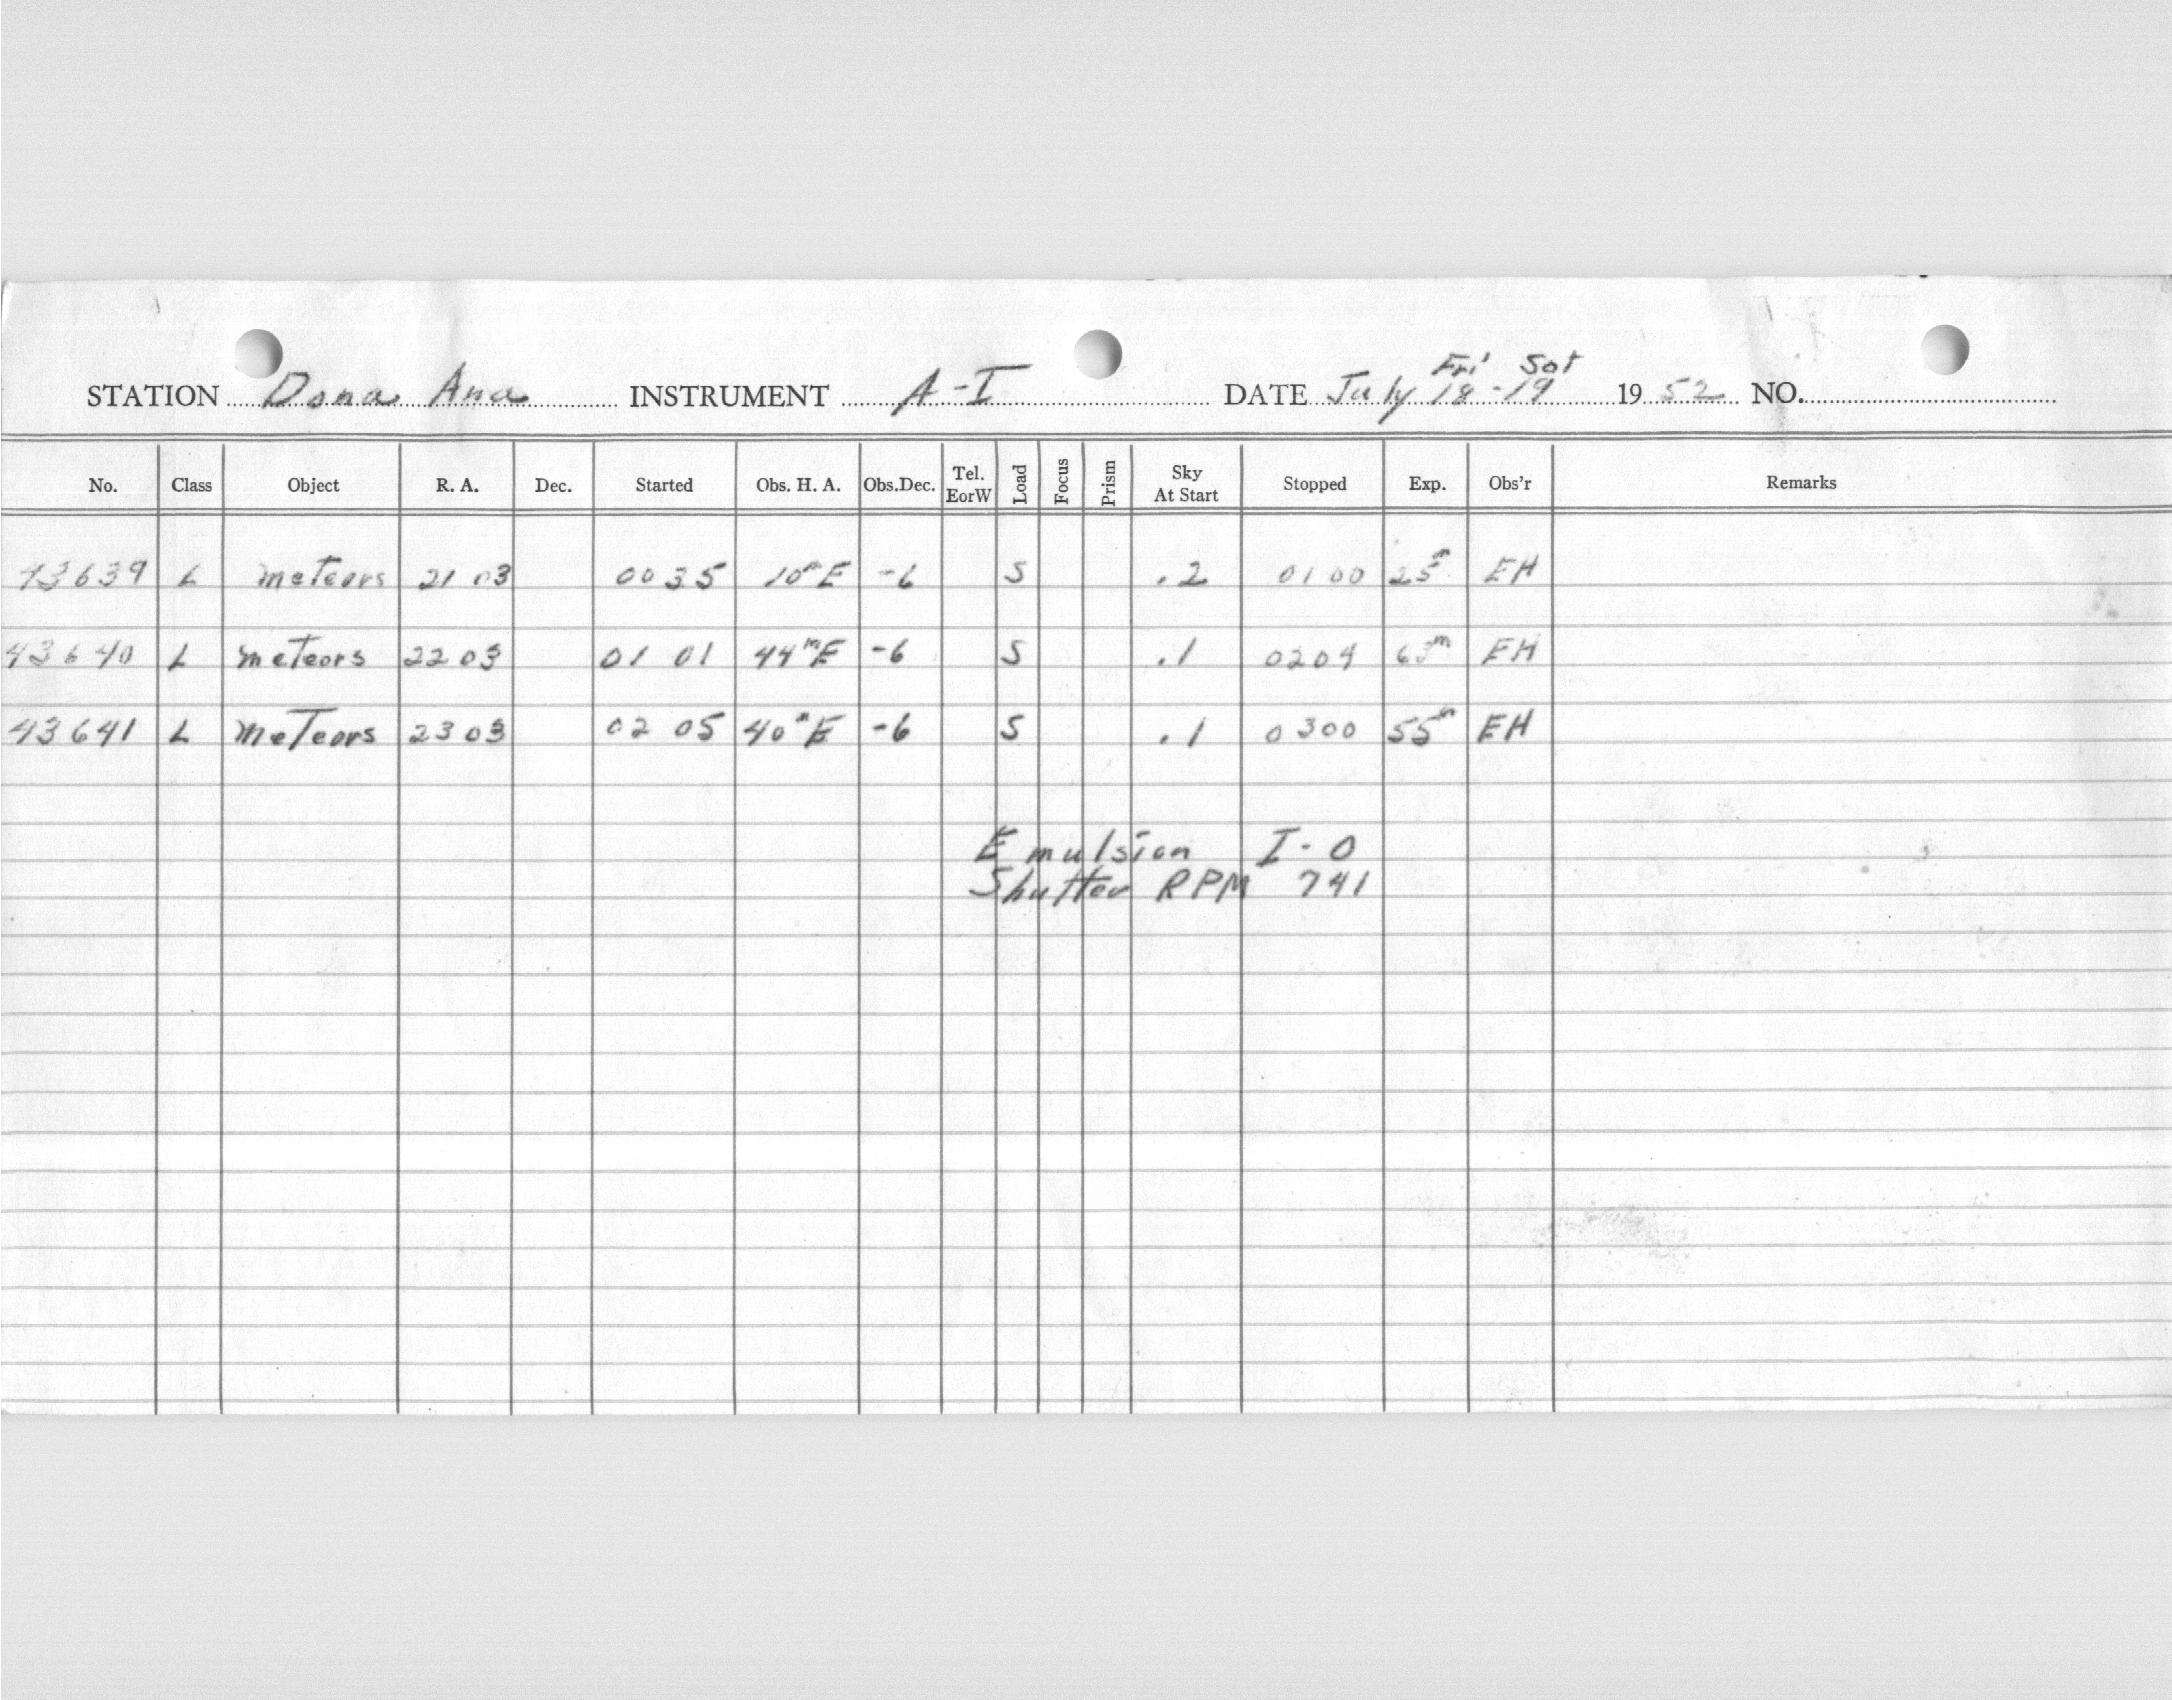 Fri Sat
STATION Dona Ana INSTRUMENT A-I DATE July 18-19 1952 NO.
No. Class Object R. A. Dec. Started Obs. H. A. Obs.Dec. Tel. EorW Load Focus Prism Sky At Start Stopped Exp. Obs'r Remarks
43639 L meteors 21 03 00 35 10m E -6 S .2 01 00 25m EH
43640 L meteors 22 03 01 01 44m E -6 S .1 0204 63m EH
43641 L meteors 23 03 02 05 40m E -6 S .1 0300 55m EH
Emulsion I-O
Shutter RPM 741